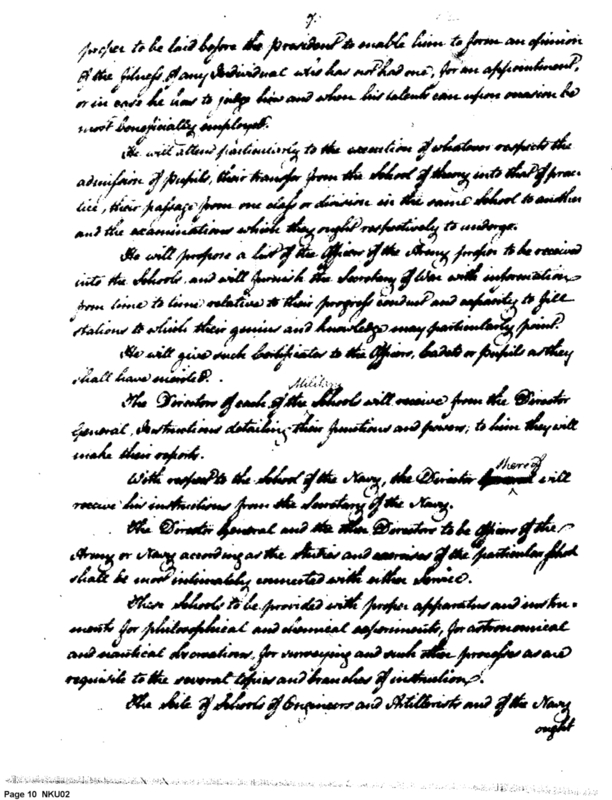 7.
proper to be laid before the president to enable him to form an opinion
of the fitness of any Individual who has not had one, for an appointment,
or in case he has to judge how and when his talents can upon occasion be
most beneficially employed.
He will attend particularly to the execution of whatever respects the
admission of pupils, their transfer from the School of theory into that of prac-
tice, their passage from one class or division in the same School to another
and the examinations which they ought respectively to undergo.
He will propose a list of the Officers of the Army proper to be received
into the Schools, and will furnish the Secretary of War with information
from time to time relative to their progress conduct and capacity to fill
stations to which their genius and knowledge may particularly point.
He will give such Certificates to the Officers, Cadets or pupils as they
shall have merited.
Military
The Directors of each of the Schools will receive from the Director
General, Instructions detailing their functions and powers; to him they will
make their reports.
thereof
With respect to the School of the Navy, the Director will
receive his instructions from the Secretary of the Navy.
The Director General and the other Directors to be officers of the
Army or Navy according as the studies and exercises of the particular School
shall be most intimately connected with either Service.
These Schools to be provided with proper apparatus and instru-
ments for philosophical and chemical experiments, for astronomical
and nautical observations, for surveying and such other processes as are
requisite to the several topics and branches of instruction.
The Site of Schools of Engineers and Artillerists and of the Navy
ought
Page 10 NKU02